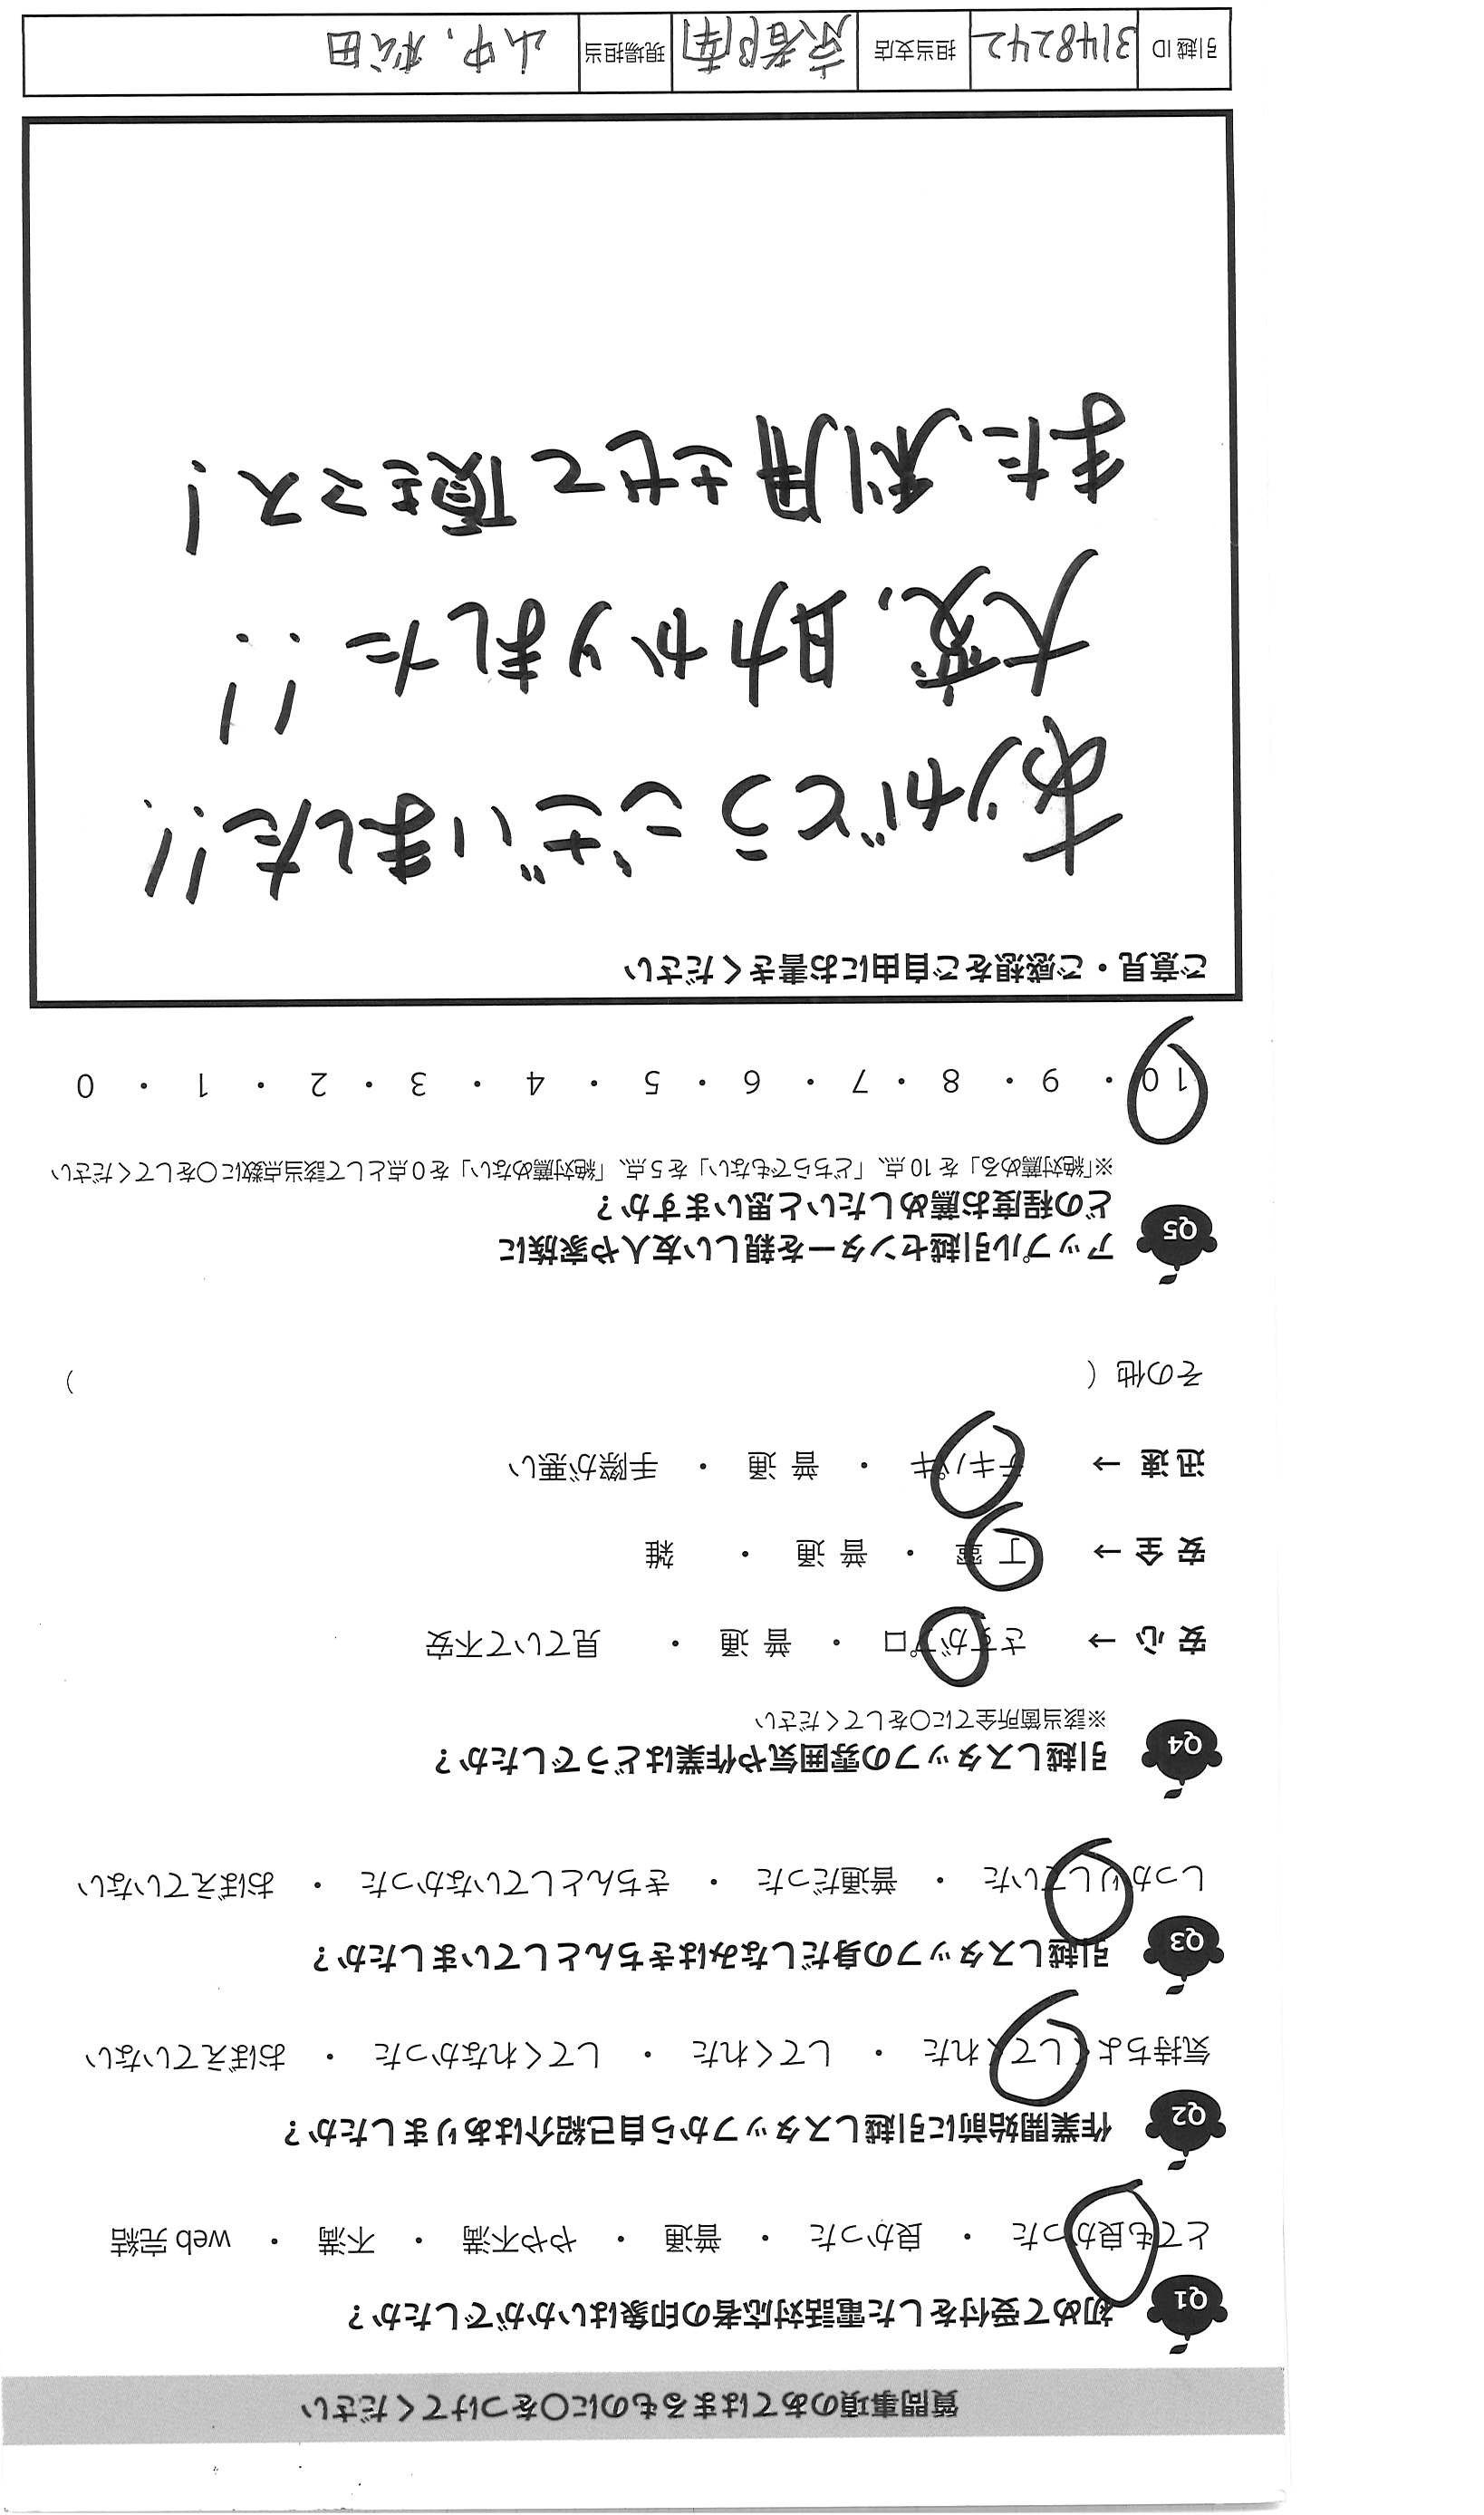 質問事項のあてはまるものに〇をつけてください
Q1 初めて受付をした電話対応者の印象はいかがでしたか？
とても良かった ・ 良かった ・ 普通 ・ やや不満 ・ 不満 ・ web 完結
Q2 作業開始前に引越しスタッフから自己紹介はありましたか？
気持ちよくしてくれた ・ してくれた ・ してくれなかった ・ おぼえていない
Q3 引越しスタッフの身だしなみはきちんとしていましたか？
しっかりしていた ・ 普通だった ・ きちんとしていなかった ・ おぼえていない
Q4 引越しスタッフの雰囲気や作業はどうでしたか？
※該当箇所全てに〇をしてください
安 心 → さすがプロ ・ 普 通 ・ 見ていて不安
安 全 → 丁 寧 ・ 普 通 ・ 雑
迅 速 → テキパキ ・ 普 通 ・ 手際が悪い
その他（ ）
Q5 アップル引越センターを親しい友人や家族に
どの程度お薦めしたいと思いますか？
※「絶対薦める」を 10 点、「どちらでもない」を 5 点、「絶対薦めない」を 0 点として該当点数に〇をしてください
10 ・ 9 ・ 8 ・ 7 ・ 6 ・ 5 ・ 4 ・ 3 ・ 2 ・ 1 ・ 0
ご意見・ご感想をご自由にお書きください
ありがとうございました!!
大変、助かりました!!
また、利用させて頂きマス!
引越 ID 3148242 担当支店 京都南 現場担当 山中, 松田